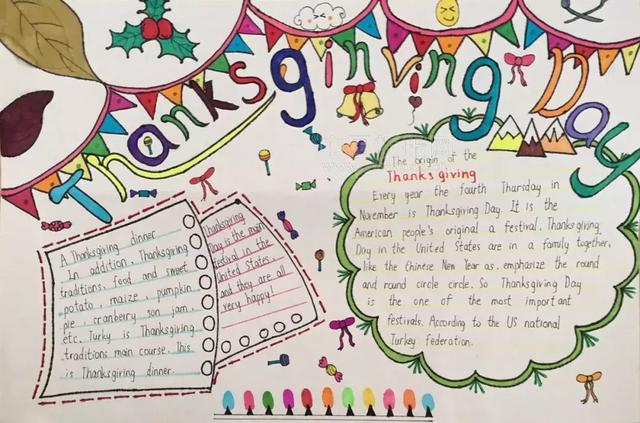 Thanksgivinving Day
The origin of the
Thanksgiving
Every year the fourth Thursday in
November is Thanksgiving Day. It is the
American people's original a festival. Thanksgiving
Day in the United States are in a family together,
like the Chinese New Year as. empharize the round
and round circle circle. So Thanksgiving Day
is the one of the most important
festivals. According to the US national
Turkey federation.
A Thanksgiving dinner
In addition, Thanksgiving
traditions, food and sweet
potato, maize, pumpkin
pie, cranberry son jam,
etc. Turky is Thanksgiving
traditions main course. This
is Thanksgiving dinner.
Thanksgiving
Day is the main
festival in the
United States,
and they are all
very happy!